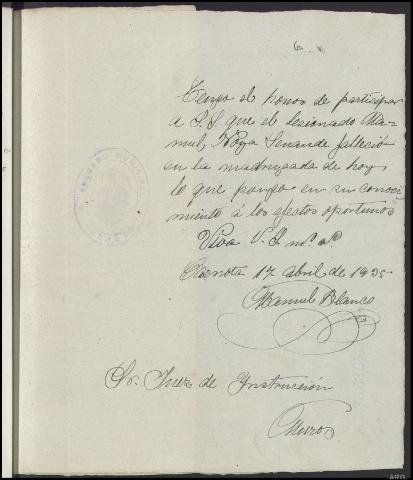 Tengo el honor de participar
a S.S. que el lesionado Ma-
nuel Noya Senande falleció
en la madrugada de hoy
lo que pongo en su conoci
miento á los efectos oportunos
Viva V.S. ms. as.
17 abril de 1935
Manuel Blanco
Sr. Juez de Instrucción
Muros
JUZGADO MUNICIPAL
ARG